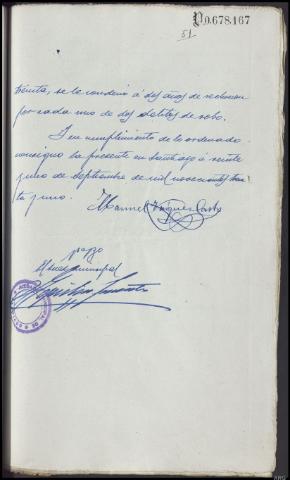 P.0.678.167
51
treinta, se le condenó á dos años de reclusion
por cada uno de dos delitos de robo.
Y en cumplimiento de lo ordenado
consigno la presente en Santiago á veinte
uno de Septiembre de mil novecientos trein
ta y uno.
Manuel
El Juez municipal